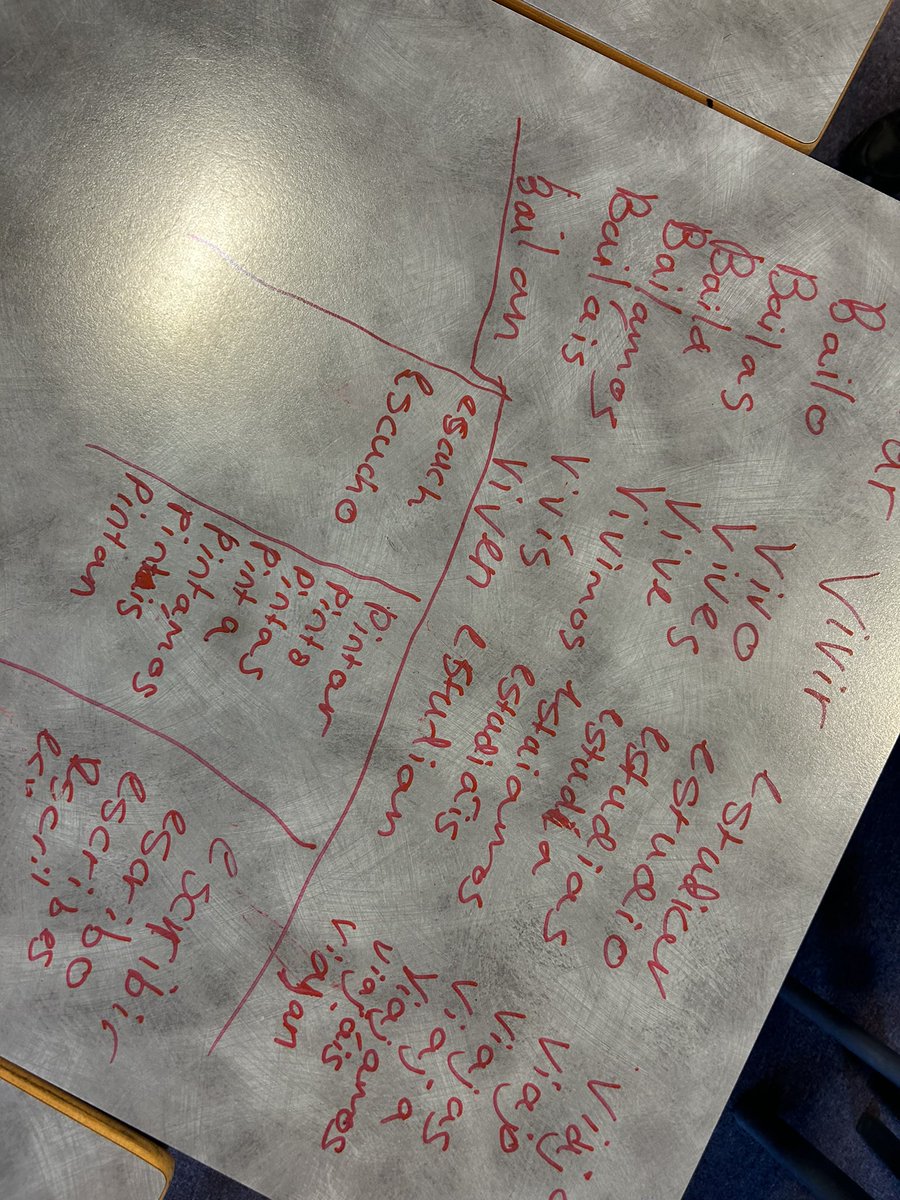 ar
Bailo
Bailas
Baila
Bailamos
Bailais
Bailan
Vivir
Vivo
Vives
Vive
Vivimos
Vivís
Viven
Estudiar
estudio
estudias
estudia
estaiamos
estudiais
Estudian
Viaj
Viajo
Viajas
Viaja
viajamos
viajais
viajan
esuch
Escucho
pintar
pinto
pintas
pinta
pintamos
pintais
pintan
escribir
escribo
escribes